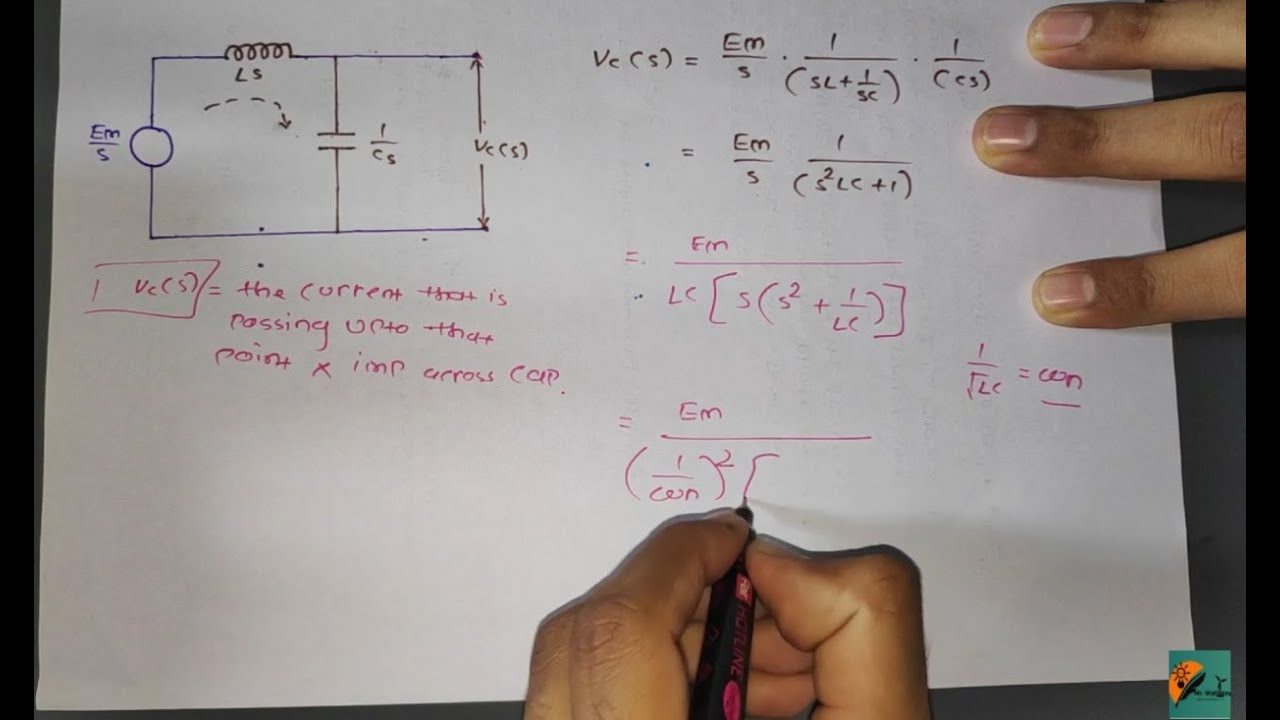 Ls
Em/s
1/Cs
Vc(s)
Vc(s) = the current that is
passing upto that
point x imp across cap.
Vc(s) = Em/s · 1/(sL+1/sC) · 1/(Cs)
= Em/s 1/(s²LC+1)
= Em/LC[s(s²+1/LC)]
1/√LC = ωn
= Em/(1/ωn)² [
HOTLINE